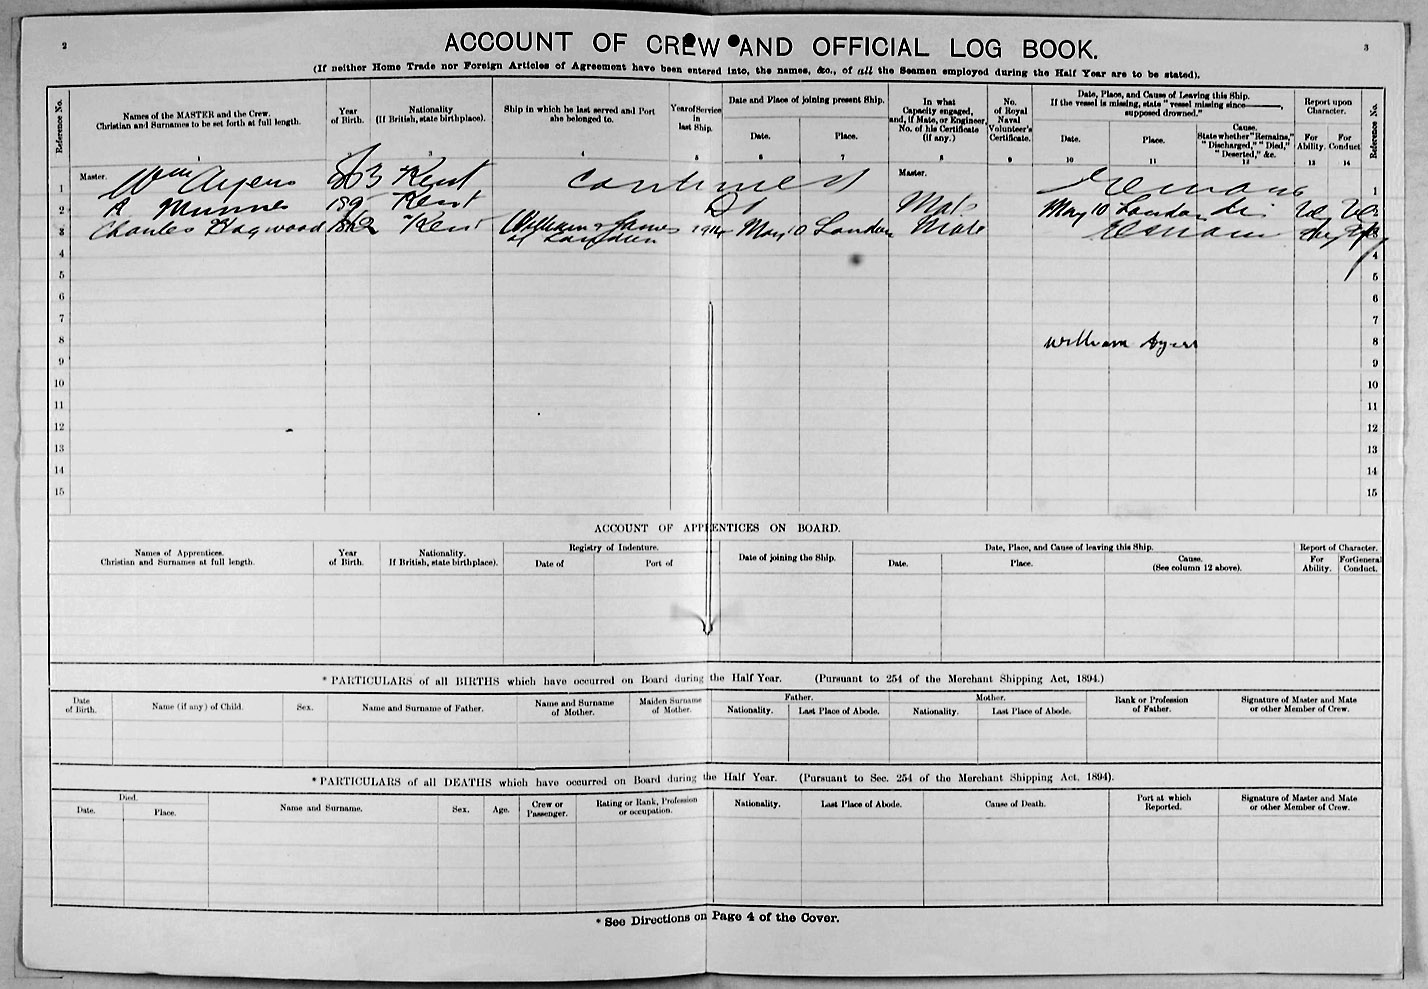 2
3
ACCOUNT OF CREW AND OFFICIAL LOG BOOK.
(If neither Home Trade nor Foreign Articles of Agreement have been entered into, the names, &c., of all the Seamen employed during the Half Year are to be stated).
Reference No.
Names of the MASTER and the Crew.
Christian and Surnames to be set forth at full length.
1
Year of Birth.
2
Nationality
(If British, state birthplace).
3
Ship in which he last served and Port she belonged to.
4
Year of Service in last Ship.
5
Date and Place of joining present Ship.
Date.
6
Place.
7
In what Capacity engaged, and, if Mate, or Engineer, No. of his Certificate (if any.)
8
No. of Royal Naval Volunteer's Certificate.
9
Date, Place, and Cause of Leaving this Ship.
If the vessel is missing, state "vessel missing since———, supposed drowned."
Date.
10
Place.
11
Cause.
State whether "Remains," "Discharged," "Died," "Deserted," &c.
12
Report upon Character.
For Ability.
13
For Conduct
14
Reference No.
1 Master. Wm Ayers 863 Kent continues Master. Remains 1
2 A Kent Do Mate May 10 London Dis 2
3 Charles 1862 Kent William & James of London 1914 May 10 London Mate Remain
4 4
5 5
6 6
7 7
8 William Ayers 8
9 9
10 10
11 11
12 12
13 13
14 14
15 15
ACCOUNT OF APPRENTICES ON BOARD.
Names of Apprentices.
Christian and Surnames at full length.
Year of Birth.
Nationality.
(If British, state birthplace).
Registry of Indenture.
Date of
Port of
Date of joining the Ship.
Date, Place, and Cause of leaving this Ship.
Date.
Place.
Cause.
(See column 12 above).
Report of Character.
For Ability.
For General Conduct.
* PARTICULARS of all BIRTHS which have occurred on Board during the Half Year. (Pursuant to 254 of the Merchant Shipping Act, 1894.)
Date of Birth.
Name (if any) of Child.
Sex.
Name and Surname of Father.
Name and Surname of Mother.
Maiden Surname of Mother.
Father.
Nationality.
Last Place of Abode.
Mother.
Nationality.
Last Place of Abode.
Rank or Profession of Father.
Signature of Master and Mate or other Member of Crew.
* PARTICULARS of all DEATHS which have occurred on Board during the Half Year. (Pursuant to Sec. 254 of the Merchant Shipping Act, 1894).
Died.
Date.
Place.
Name and Surname.
Sex.
Age.
Crew or Passenger.
Rating or Rank, Profession or occupation.
Nationality.
Last Place of Abode.
Cause of Death.
Port at which Reported.
Signature of Master and Mate or other Member of Crew.
* See Directions on Page 4 of the Cover.